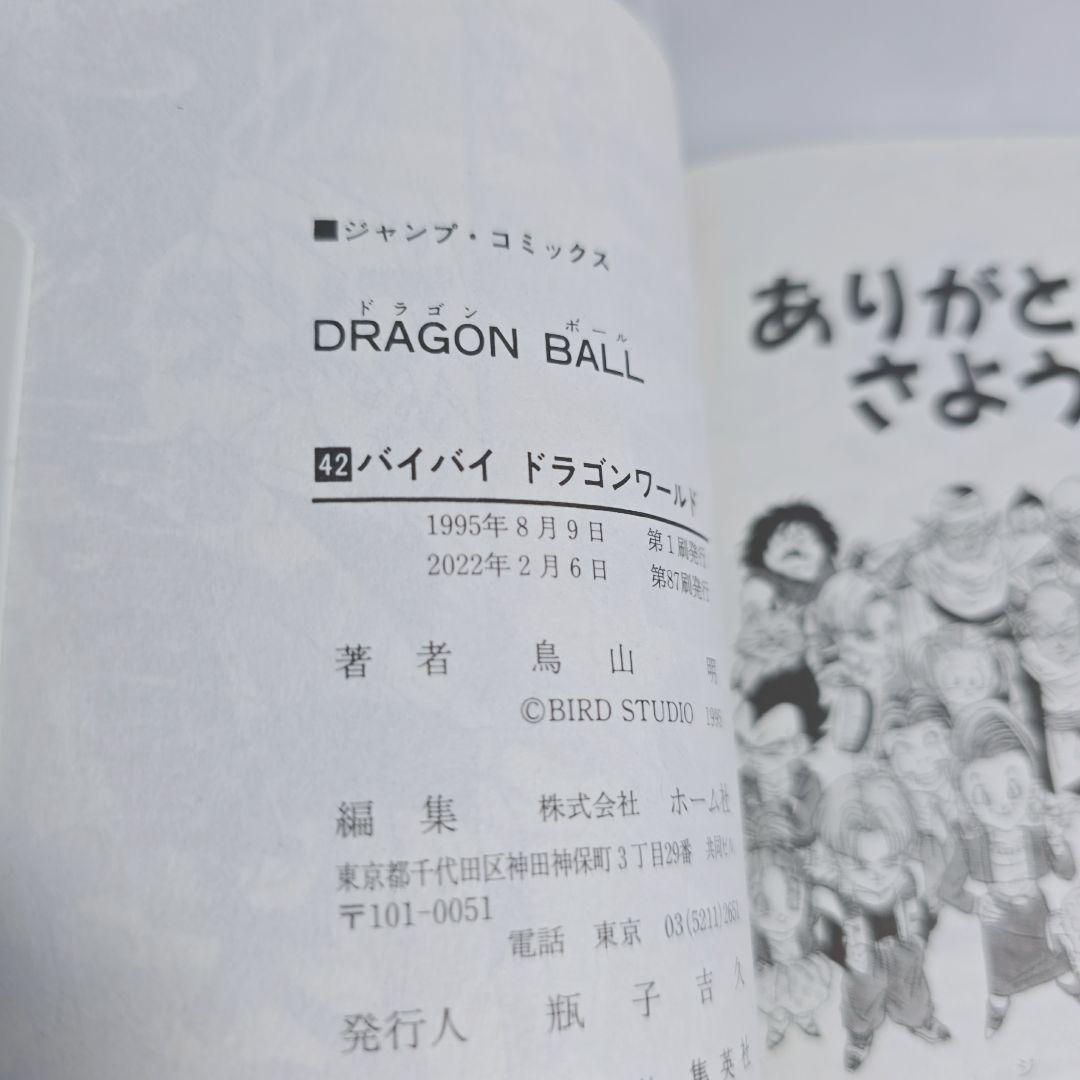 ■ジャンプ・コミックス
ドラゴン ボール
DRAGON BALL
42 バイバイ ドラゴンワールド
1995年8月9日 第1刷発行
2022年2月6日 第87刷発行
著者 鳥山 明
©BIRD STUDIO 1995
編集 株式会社 ホーム社
東京都千代田区神田神保町3丁目29番 共同ビル
〒101-0051
電話 東京 03(5211)2651
発行人 瓶子吉久
集英社
ありがと
さよう